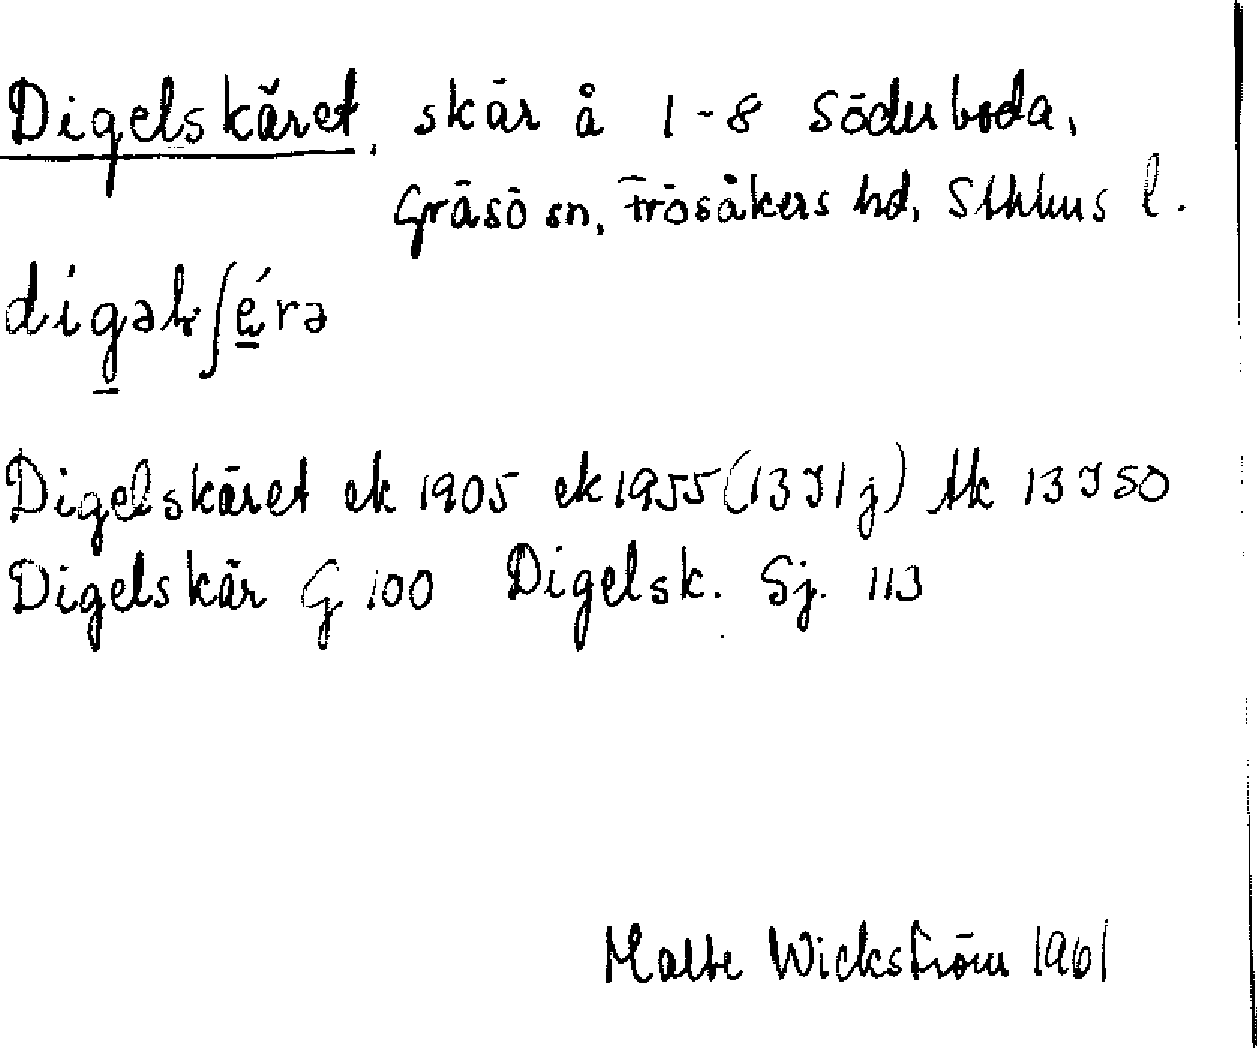 Digelskäret, skär å 1-8 Söderboda,
Gräsö sn, Frösåkers hd, Sthlms l.
Digelskäret ek 1905 ek 1955 (13I1j) tk 13I SO
Digelskär G 100 Digelsk. Sj. 113
Malte Wickström 1961